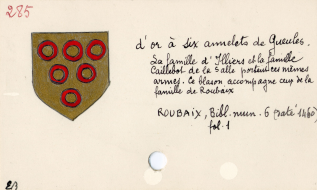 285
d'or à six annelets de Gueules.
La famille d'Illiers et la famille
Caillebot de la Salle portaient ces mêmes
armes. Ce blason accompagne ceux de la
famille de Roubaix
ROUBAIX, Bibl. mun. 6 (daté 1460)
fol. 1